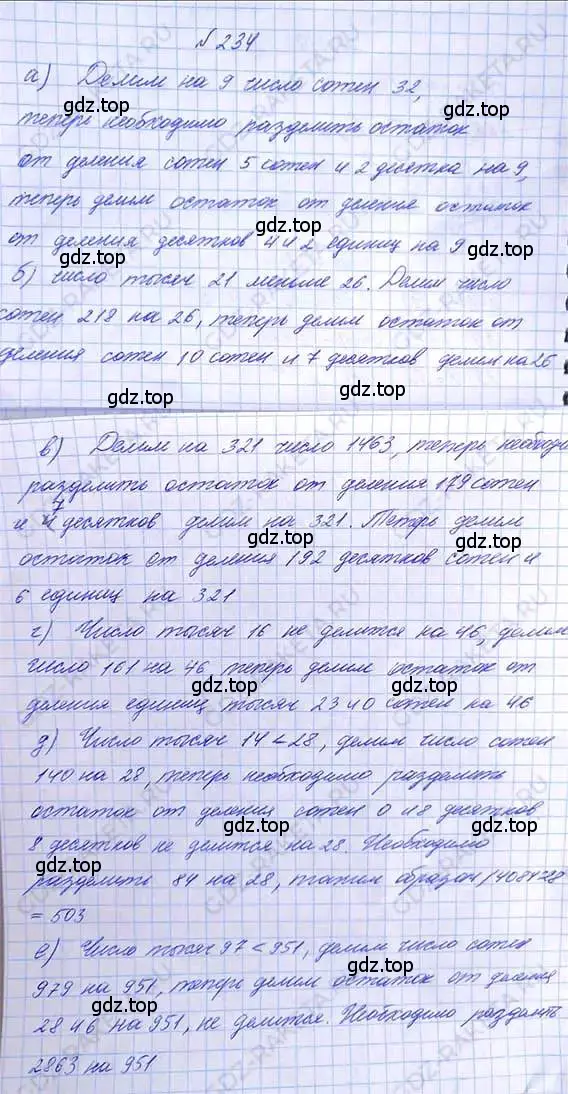 № 234
а) Делим на 9 число сотен 32,
теперь необходимо разделить остаток
от деления сотен 5 сотен и 2 десятка на 9,
теперь делим остаток от деления остаток
от деления десятков 4 и 2 единиц на 9
б) число тысяч 21 меньше 26. Делим число
сотен 218 на 26, теперь делим остаток от
деления сотен 10 сотен и 7 десятков делим на 26
в) Делим на 321 число 1463, теперь необходи
разделить остаток от деления 179 сотен
и 7 десятков делим на 321. Теперь делим
остаток от деления 192 десятков сотен и
6 единиц на 321
г) Число тысяч 16 не делится на 46, делим
число 161 на 46 теперь делим остаток от
деления единиц тысяч 23 40 сотен на 46
д) Число тысяч 14 < 28, делим число сотен
140 на 28, теперь необходимо разделить
остаток от деления сотен 0 и 8 десятков
8 десятков не делится на 28. Необходимо
разделить 84 на 28, таким образом 14084:28
= 503
е) Число тысяч 97 < 951, делим число сотен
979 на 951, теперь делим остаток от деления
28 46 на 951, не делится. Необходимо разделить
2863 на 951
gdz.top
gdz.top
gdz.top
gdz.top
gdz.top
gdz.top
gdz.top
gdz.top
gdz.top
gdz.top
gdz.top
gdz.top
gdz.top
gdz.top